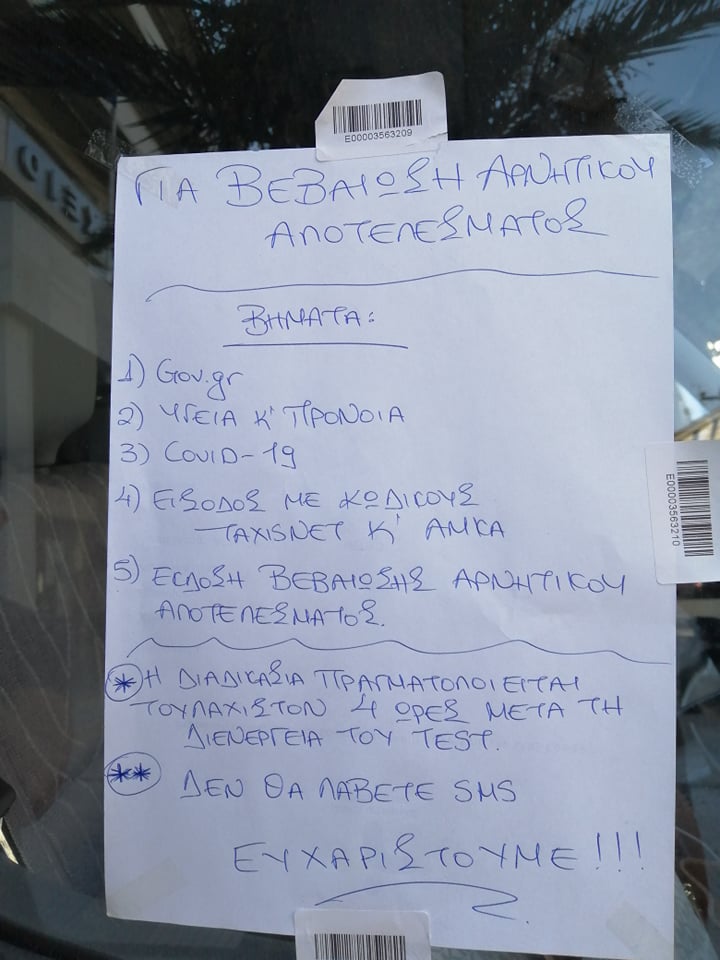 E00003563209
ΓΙΑ ΒΕΒΑΙΩΣΗ ΑΡΝΗΤΙΚΟΥ
ΑΠΟΤΕΛΕΣΜΑΤΟΣ
ΒΗΜΑΤΑ:
1) Gov.gr
2) ΥΓΕΙΑ Κ' ΠΡΟΝΟΙΑ
3) COVID-19
4) ΕΙΣΟΔΟΣ ΜΕ ΚΩΔΙΚΟΥΣ
TAXISNET Κ' ΑΜΚΑ
5) ΕΚΔΟΣΗ ΒΕΒΑΙΩΣΗΣ ΑΡΝΗΤΙΚΟΥ
ΑΠΟΤΕΛΕΣΜΑΤΟΣ.
* Η ΔΙΑΔΙΚΑΣΙΑ ΠΡΑΓΜΑΤΟΠΟΙΕΙΤΑΙ
ΤΟΥΛΑΧΙΣΤΟΝ 4 ΩΡΕΣ ΜΕΤΑ ΤΗ
ΔΙΕΝΕΡΓΕΙΑ ΤΟΥ TEST.
** ΔΕΝ ΘΑ ΛΑΒΕΤΕ SMS
ΕΥΧΑΡΙΣΤΟΥΜΕ!!!
E00003563210